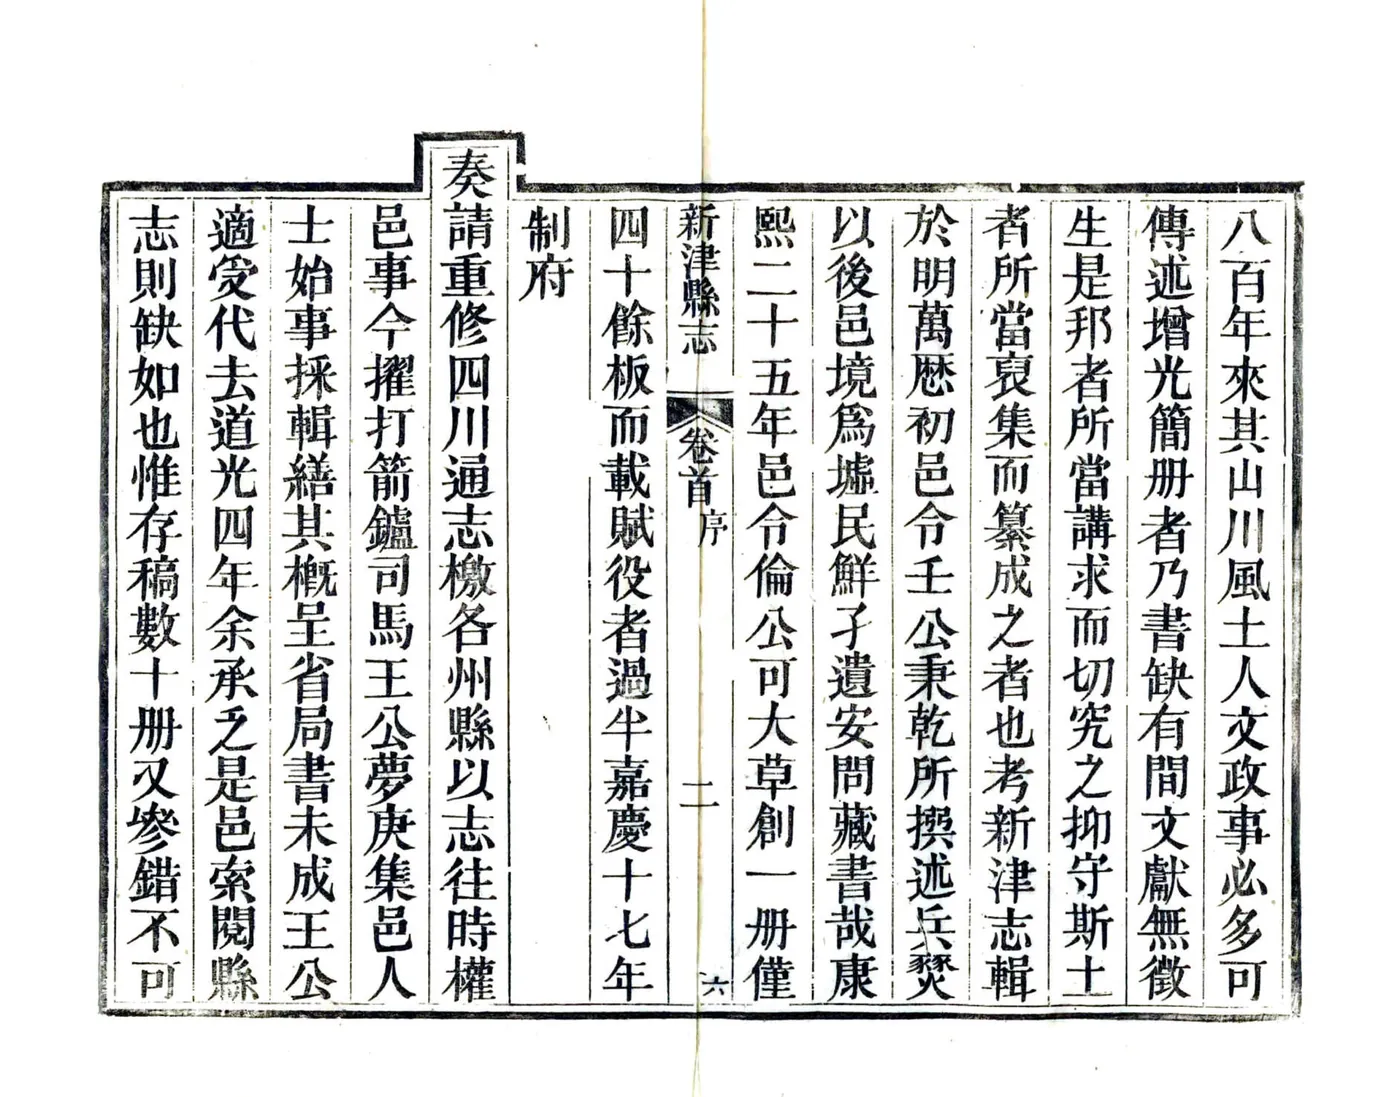 八百年來其山川風土人文政事必多可
傳述增光簡册者乃書缺有間文獻無徵
生是邦者所當講求而切究之抑守斯土
者所當裒集而纂成之者也考新津志輯
於明萬厯初邑令壬公秉乾所撰述兵燹
以後邑境爲墟民鮮孑遺安問藏書哉康
熙二十五年邑令倫公可大草創一册僅
新津縣志
卷首
序
二
六
四十餘板而載賦役者過半嘉慶十七年
制府
奏請重修四川通志檄各州縣以志往時權
邑事今擢打箭鑪司馬王公夢庚集邑人
士始事採輯繕其槪呈省局書未成王公
適受代去道光四年余承乏是邑索閱縣
志則缺如也惟存稿數十册又參錯不可